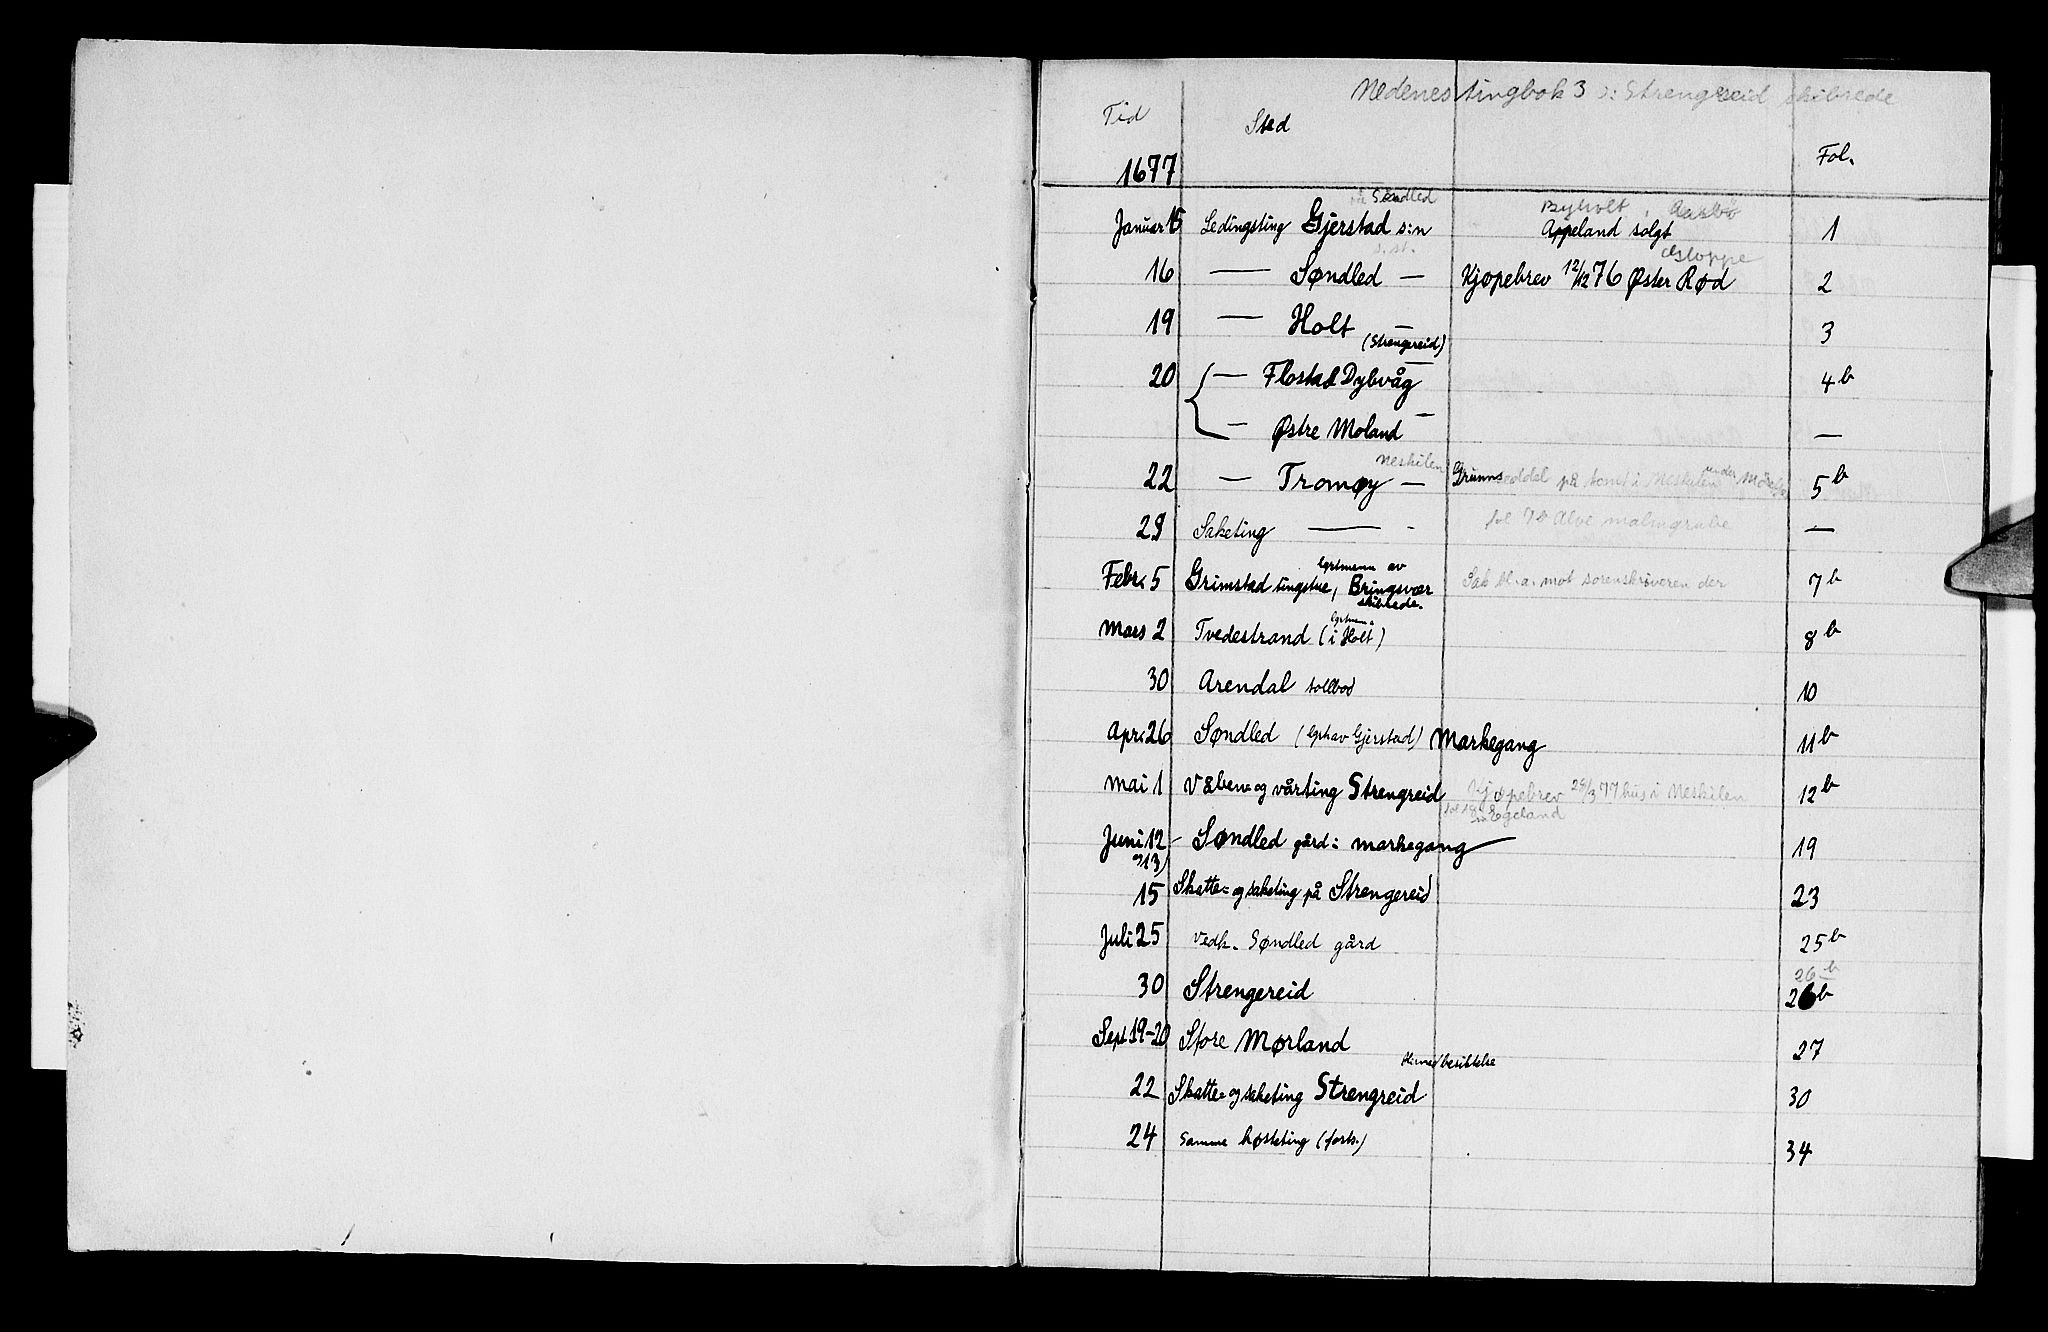 Nedenes tingbok 3 ɔ: Strengereid skibrede
Tid Sted Fol.
1677
på Søndled
Januar 15 Ledingsting Gjerstad s:n Byholt, Aasbø Appeland solgt 1
s. st.
16 — Søndled — Kjøpebrev 12/12 76 Øster Rød 2
19 — Holt — 3
(Strengereid)
20 — Flosta & Dybvåg — 4b
— Østre Moland — —
22 — Tromøy — Neskilen Grunnseddel på tomt i Neskilen under 5b
29 Saketing — fol 78 Alve malmgrube —
Febr. 5 Grimstad tingstue, Lgrtmenn av Bringsvær skibrede. Sak bl.a. mot sorenskriveren der 7b
Mars 2 Tvedestrand (i Holt) 8b
30 Arendal tollbod 10
Apr. 26 Søndled (av Gjerstad) Markegang 11b
Mai 1 Våben- og vårting Strengreid Kjøpebrev 29/3 77 hus i Neskilen 12b
Egeland
Juni 12 — Søndled gård: markegang — 19
og 13)
15 Skatte- og saketing på Strengereid 23
Juli 25 Vedk. Søndled gård 25b
26b
30 Strengereid 26b
Sept 19-20 Store Mørland 27
22 Skatte- og saketing Strengreid 30
24 Samme høstting (forts.) 34